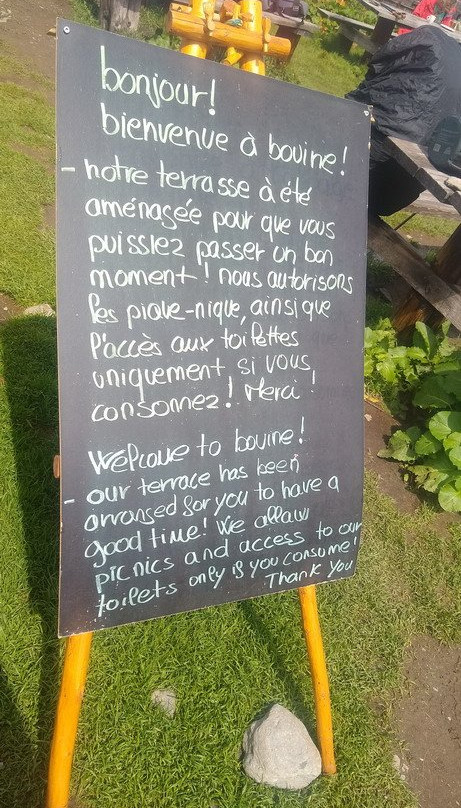 bonjour!
bienvenue à bovine!
- notre terrasse à été
aménagée pour que vous
puissiez passer un bon
moment! nous autorisons
les pique-nique, ainsi que
l'accès aux toilettes
uniquement si vous
consommez! Merci!
Welcome to bovine!
- our terrace has been
arranged for you to have a
good time! We allow
picnics and access to our
toilets only if you consume!
Thank you